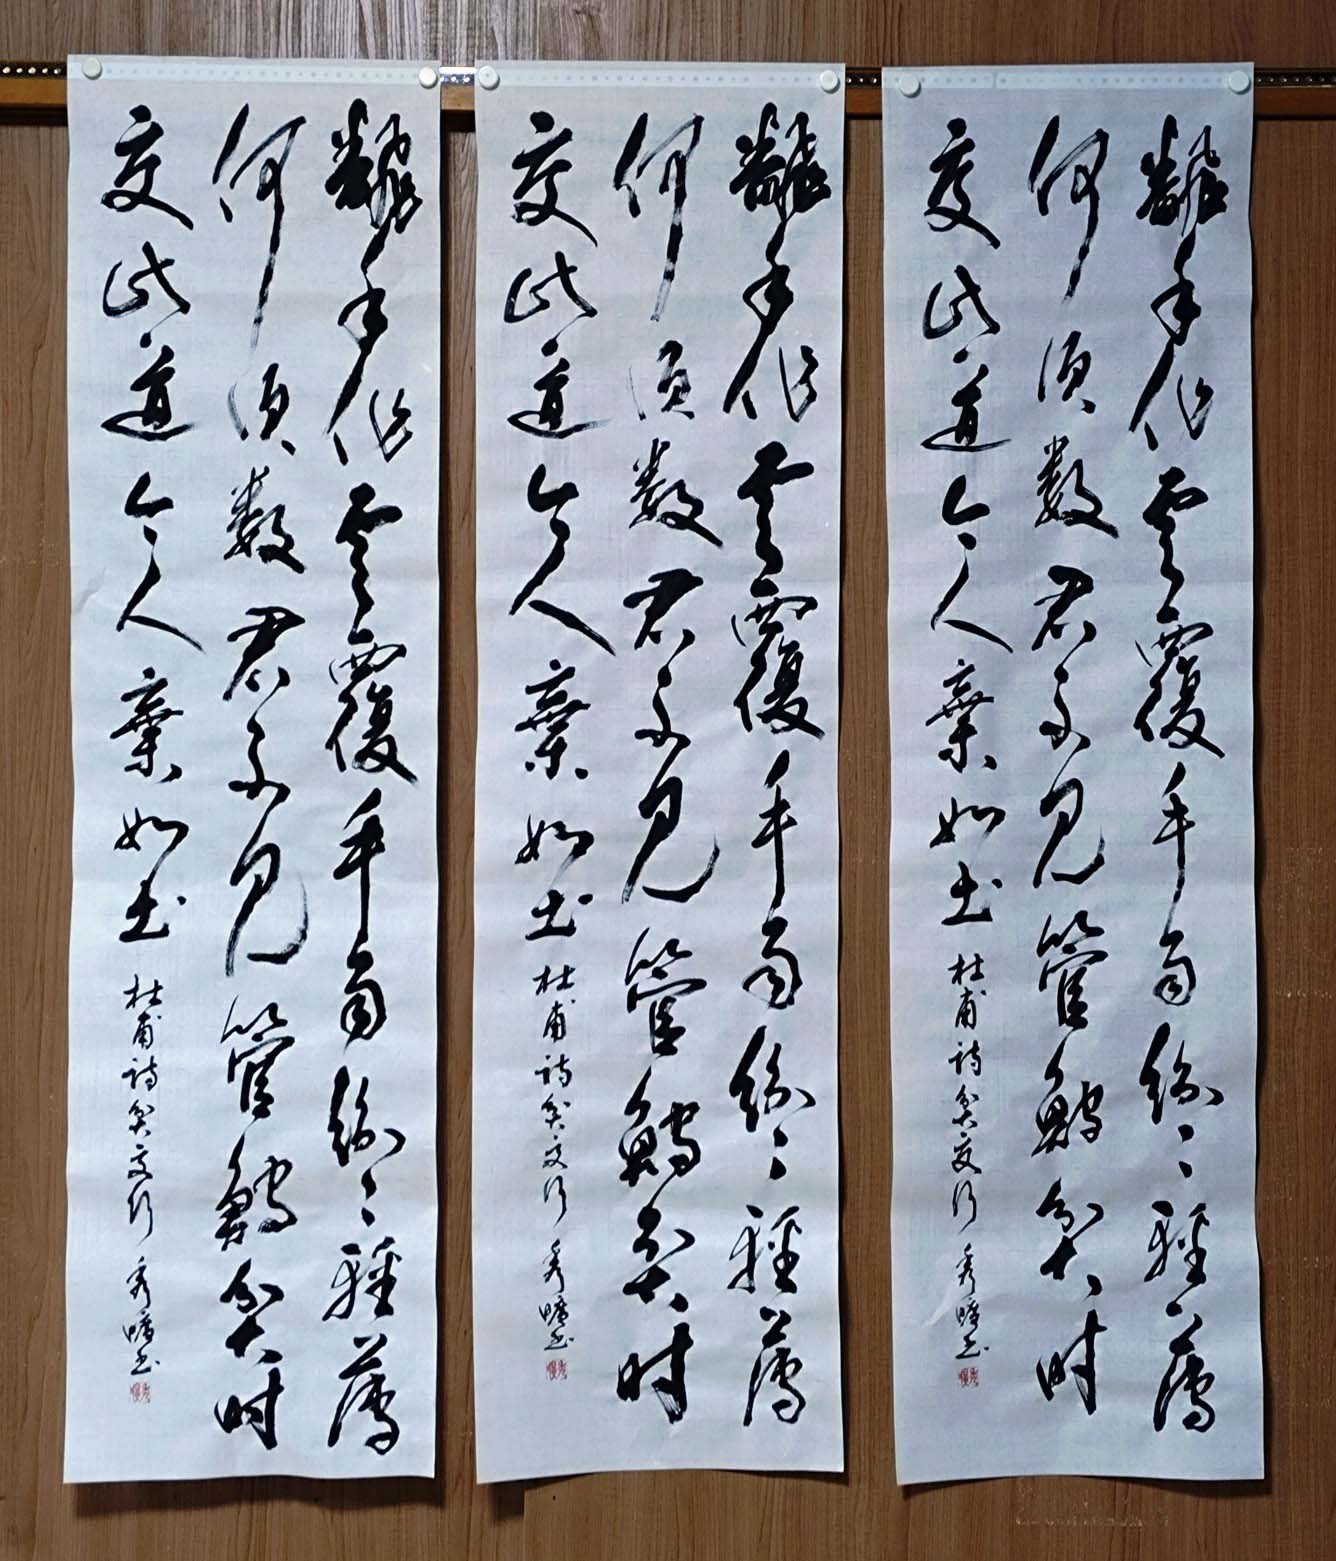 飜手作雲覆手雨紛〻輕薄
何須數君不見管鮑貧時
交此道今人棄如土 杜甫詩貧交行 秀曠書
飜手作雲覆手雨紛〻輕薄
何須數君不見管鮑貧時
交此道今人棄如土 杜甫詩貧交行 秀曠書
飜手作雲覆手雨紛〻輕薄
何須數君不見管鮑貧時
交此道今人棄如土 杜甫詩貧交行 秀曠書